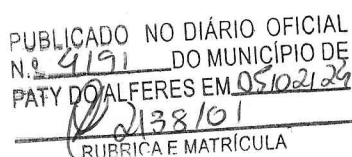 PUBLICADO NO DIÁRIO OFICIAL
N.º 4191 DO MUNICÍPIO DE
PATY DO ALFERES EM 05/02/24
2138/01
RUBRICA E MATRÍCULA